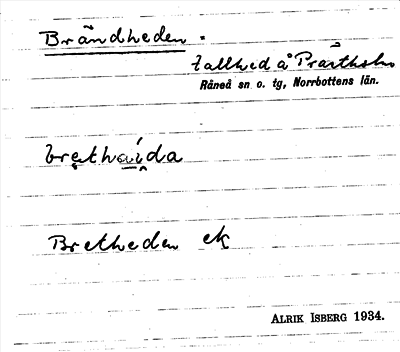 Brändheden.
tallhed å Prästholm
Råneå sn o. tg, Norrbottens län.
brethaida
Bretheden ek
ALRIK ISBERG 1934.